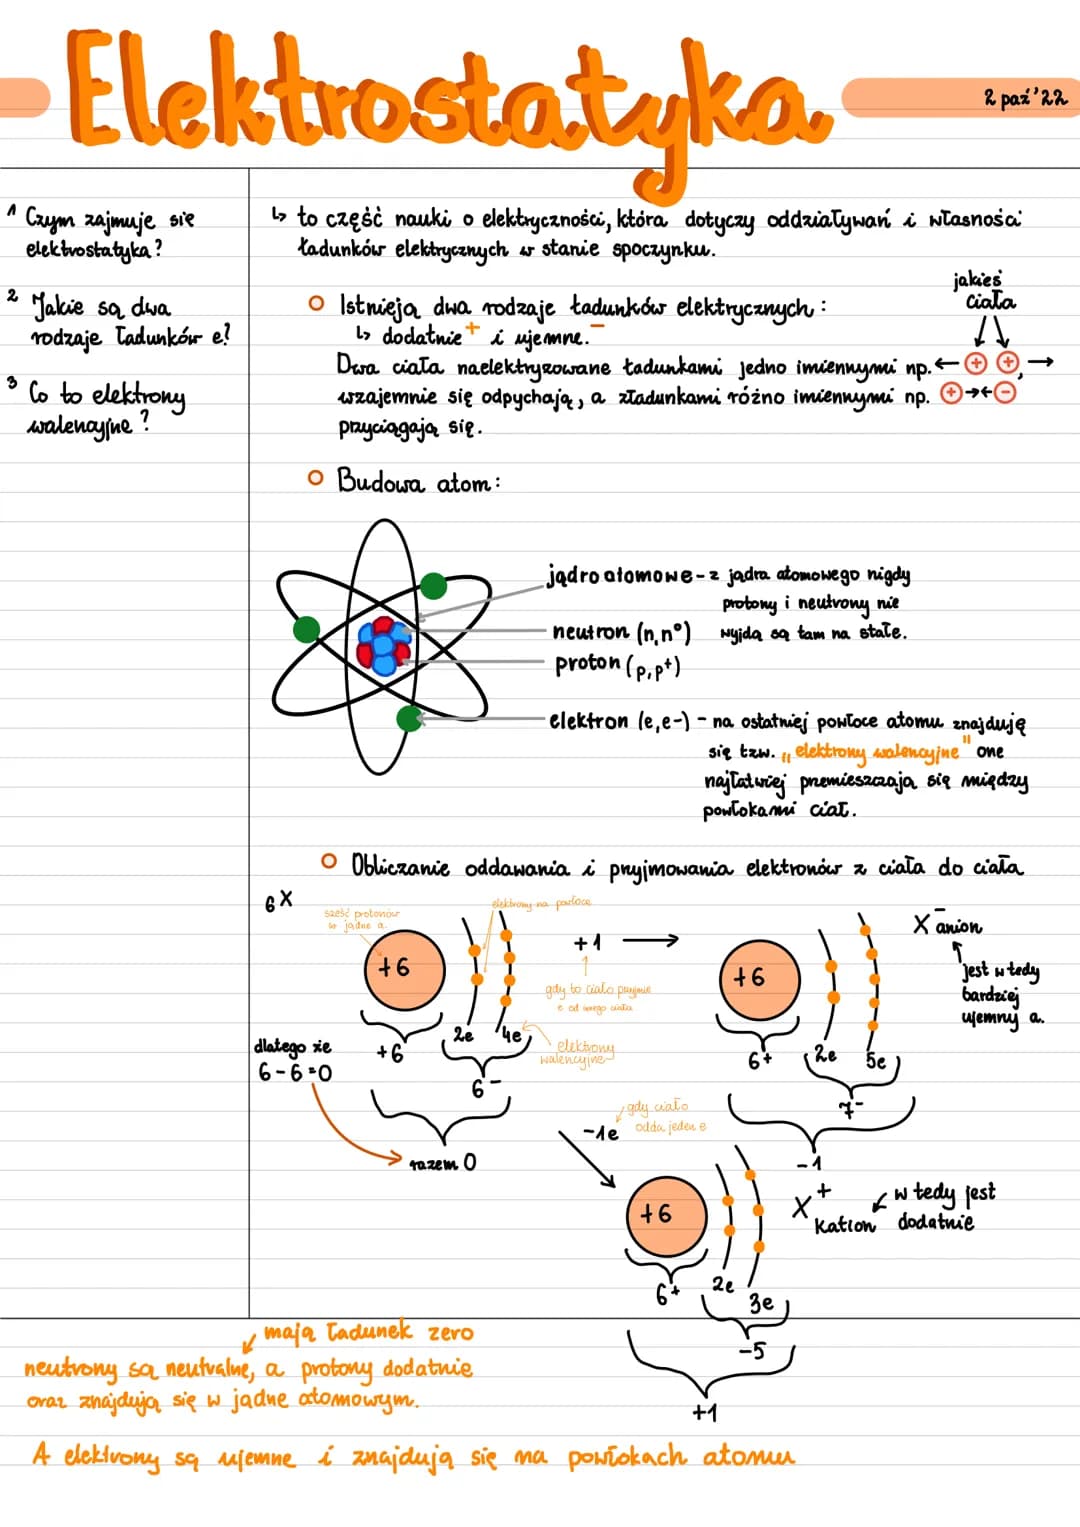 Elektrostatyka
2 paź'22
1 Czym zajmuje się
elektrostatyka?
2 Jakie są dwa
rodzaje ładunków e?
3 Co to elektrony
walencyjne?
↳ to część nauki o elektryczności, która dotyczy oddziaływań i własności
ładunków elektrycznych w stanie spoczynku.
jakieś
ciała
○ Istnieją dwa rodzaje ładunków elektrycznych:
↳ dodatnie + i ujemne. -
Dwa ciała naelektryzowane ładunkami jedno imiennymi np. ← ⊕ ⊕, →
wzajemnie się odpychają, a z ładunkami różno imiennymi np. ⊕→←⊖
przyciągają się.
○ Budowa atom:
jądro atomowe - z jądra atomowego nigdy
protony i neutrony nie
wyjdą są tam na stałe.
neutron (n, n°)
proton (p, p+)
elektron (e, e-) - na ostatniej powłoce atomu znajdują
się tzw. "elektrony walencyjne" one
najłatwiej przemieszczają się między
powłokami ciał.
○ Obliczanie oddawania i przyjmowania elektronów z ciała do ciała
6 X
sześć protonów
w jądrze a.
elektrony na powłoce
+6
+1 →
gdy to ciało przyjmie
e od innego ciała
+6
2e
4e
elektrony
walencyjne
6-
dlatego że
6-6=0
razem 0
+6
6+
2e
5e
7-
-1
X- anion
jest w tedy
bardziej
ujemny a.
-1e
gdy ciało
odda jeden e
+6
6+
2e
3e
-5
+1
X+
Kation
w tedy jest
dodatnie
mają ładunek zero
neutrony są neutralne, a protony dodatnie
oraz znajdują się w jądrze atomowym.
A elektrony są ujemne i znajdują się na powłokach atomu